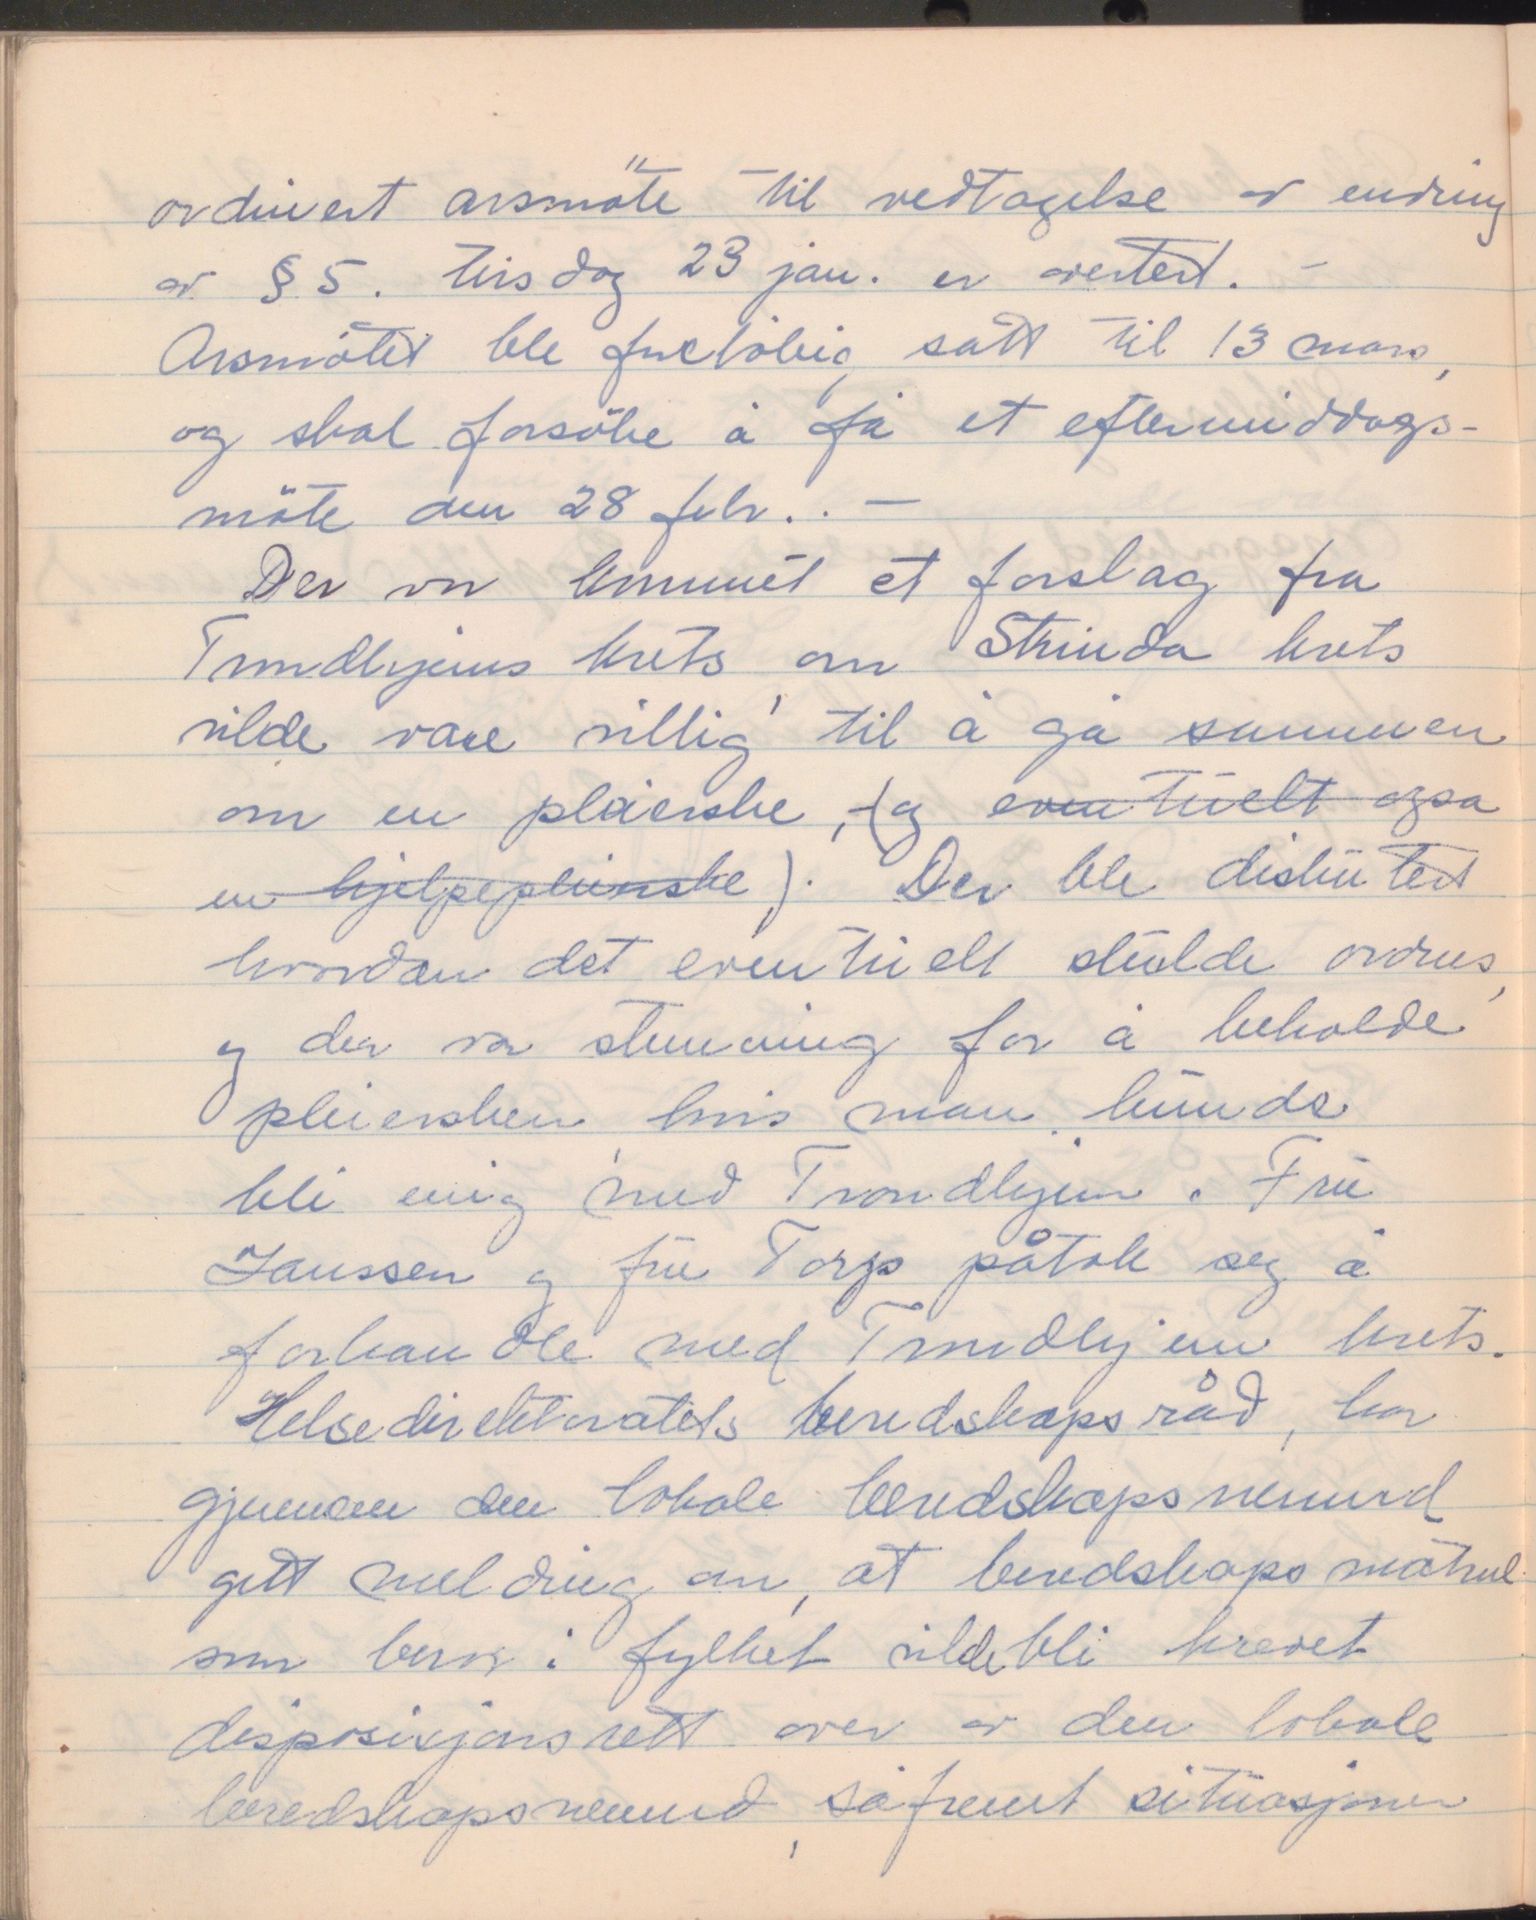 ordinert årsmöte til vedtagelse av endring
av § 5. tirsdag 23 jan. er avertert. –
Årsmötet ble foreløbig satt til 13 mars,
og skal forsöke å få et eftermiddags-
möte den 28 febr.. –
Der var kommet et forslag fra
Trondhjems krets, om Strinda krets
vilde være villig til å gå sammen
om en pleierske, (og eventuelt også
en hjelpepleierske). Der ble diskutert
hvordan det eventuelt skulde ordnes,
og der var stemning for å beholde
pleiersken, hvis man kunde
bli enig med Trondhjem. Frue
Janssen og frue Torp påtok seg å
forhandle med Trondhjem krets.
Helsedirektoratets beredskapsråd, har
gjennem den lokale beredskapsnemnd
gitt melding om, at beredskapsmatriel
som beror i fylket vilde bli krevet
disposisjonsrett over av den lokale
beredskapsnemnd, såfremt situasjonen